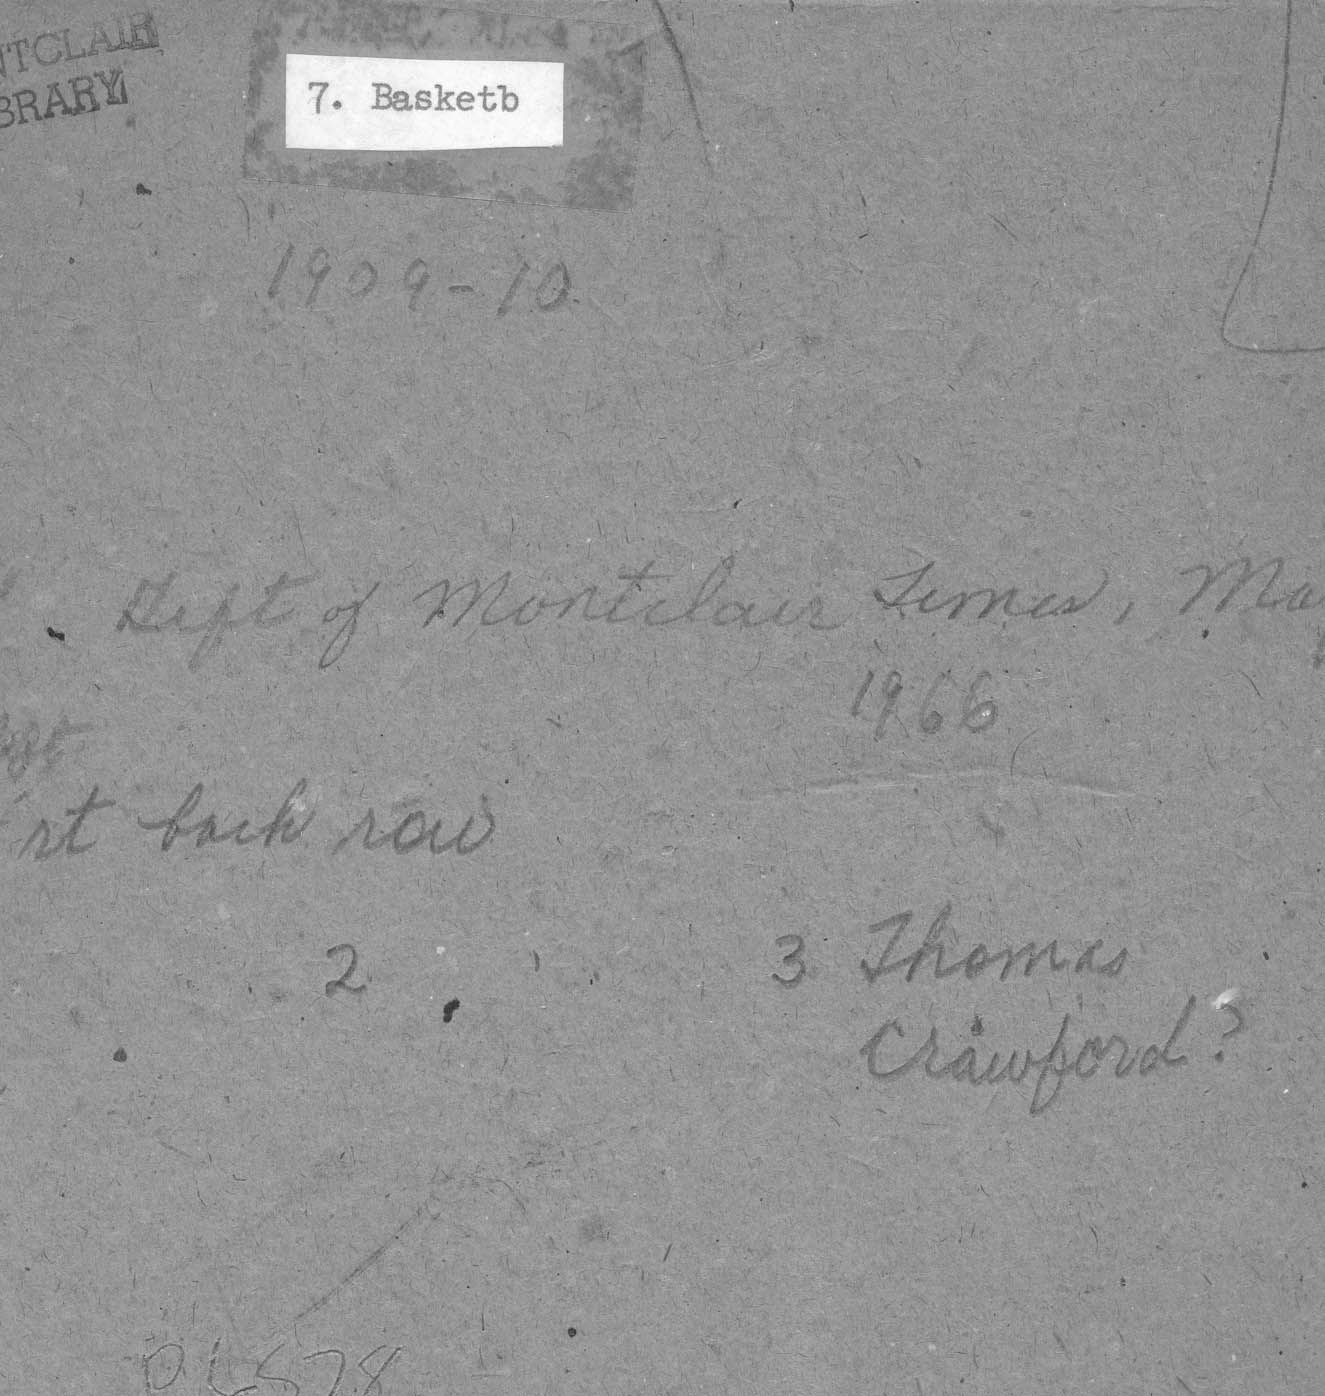 NTCLAIR
BRARY
7. Basketb
1909-10
Gift of Montclair Times, Ma
1966
rt back row
2
3 Thomas
Crawford?